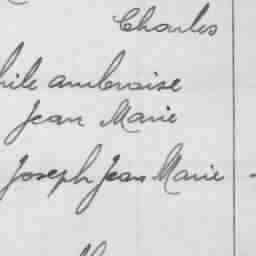 Charles
hile ambroise
Jean Marie
Joseph Jean Marie -